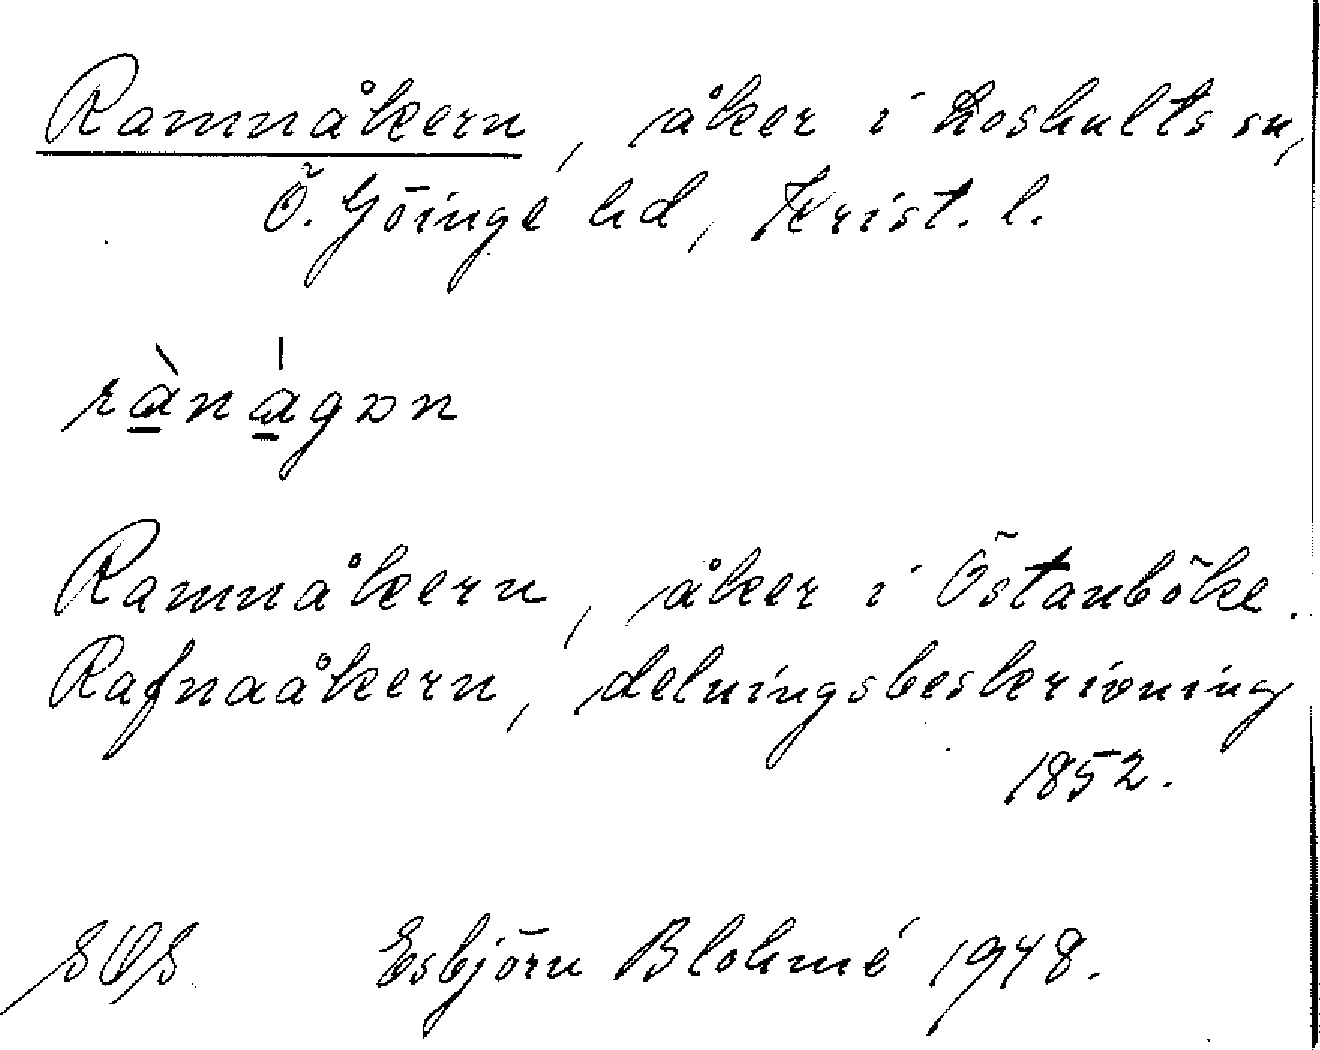 Ramnåkern, åker i Loshults sn,
Ö. Göinge hd, Krist. l.
rànágən
Ramnåkern, åker i Östanböke.
Rafnaåkern, delningsbeskrivning
1852.
SOS Esbjörn Blohmé 1948.